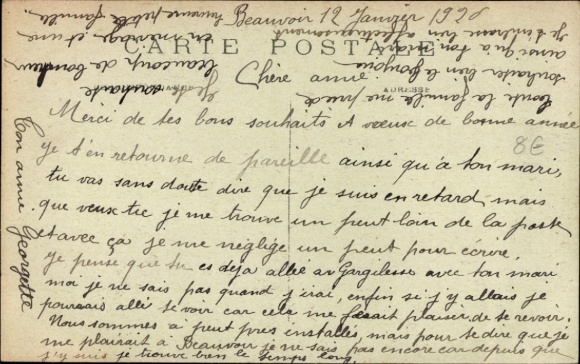 Beauvoir 12 Janvier 1928
CARTE POSTALE
Chère amie
CORRESPONDANCE
ADRESSE
Merci de tes bons souhaits et voeux de bonne année
8€
Je t'en retourne de pareille ainsi qu'à ton mari,
tu vas sans doute dire que je suis en retard mais
que veux tu je me trouve un peut loin de la poste
et avec ça je me néglige un peut pour écrire.
Je pense que tu es déja allée av Gargilesse avec ton mari
moi je ne sais pas quand j'irai, enfin si j'y allais je
pourrais allé te voir car cela me ferait plaisir de te revoir.
Nous sommes a peut près installés, mais pour te dire que je
me plairait à Beauvoir je ne sais pas encore car depuis que
j'y suis je trouve bien le temps long.
Toute la famille me prie de
souhaiter bien le bonjour
ainsi qu'a ton mari
Je t'embrasse bien affectueusement
Ton amie Georgette
Je souhaite
beaucoup de bonheur
en ménage et une
heureuse petite famille.